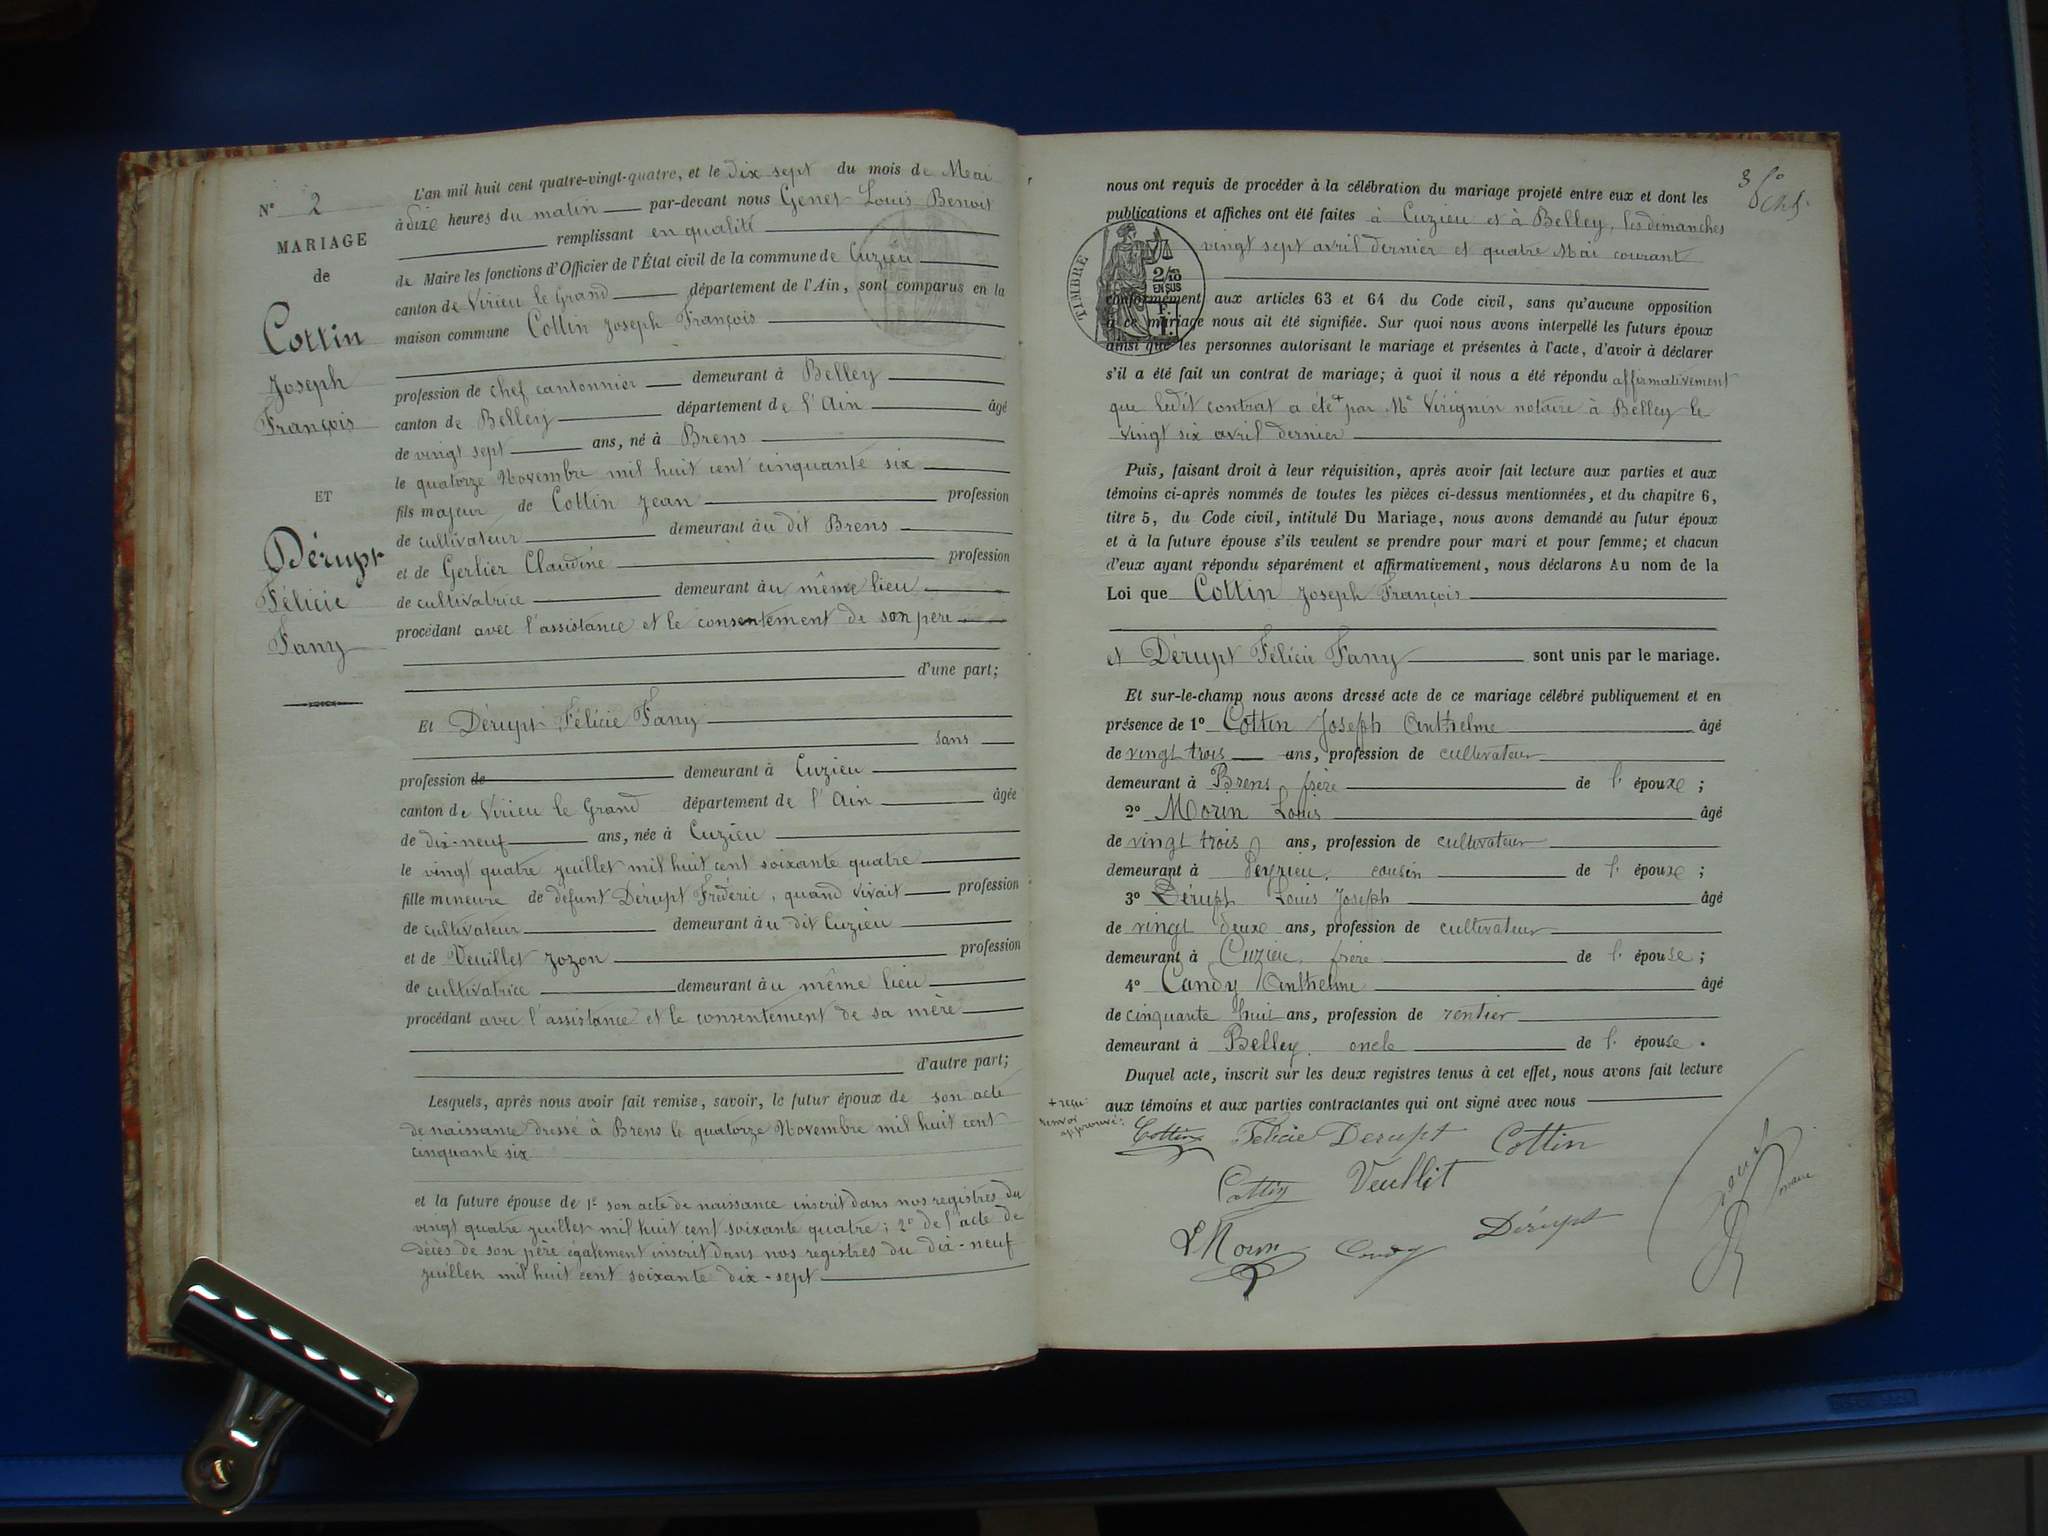 N° 2
MARIAGE
de
Cottin
Joseph
François
ET
Dérupt
Félicie
Fany
L'an mil huit cent quatre-vingt-quatre, et le dix sept du mois de Mai
à dixe heures du matin par-devant nous Genet Louis Benoit
remplissant en qualité
de Maire les fonctions d'Officier de l'État civil de la commune de Cuzieu
canton de Virieu le Grand département de l'Ain, sont comparus en la
maison commune Cottin Joseph François
profession de chef cantonnier demeurant à Belley
canton de Belley département de l'Ain âgé
de vingt sept ans, né à Brens
le quatorze Novembre mil huit cent cinquante six
fils majeur de Cottin Jean profession
de cultivateur demeurant àu dit Brens
et de Gerlier Claudine profession
de cultivatrice demeurant àu même lieu
procédant avec l'assistance et le consentement de son père
d'une part;
Et Dérupt Félicie Fany
sans
profession de demeurant à Cuzieu
canton de Virieu le Grand département de l'Ain âgée
de dix-neuf ans, née à Cuzieu
le vingt quatre juillet mil huit cent soixante quatre
fille mineure de défunt Dérupt Fréderic, quand vivait profession
de cultivateur demeurant àu dit Cuzieu
et de Veuillet Jozon profession
de cultivatrice demeurant àu même lieu
procédant avec l'assistance et le consentement de sa mère
d'autre part;
Lesquels, après nous avoir fait remise, savoir, le futur époux de son acte
de naissance dressé à Brens le quatorze Novembre mil huit cent
cinquante six
et la future épouse de 1° son acte de naissance inscrit dans nos registres du
vingt quatre juillet mil huit cent soixante quatre; 2° de l'acte de
décès de son père également inscrit dans nos registres du dix-neuf
juillet mil huit cent soixante dix-sept
3
nous ont requis de procéder à la célébration du mariage projeté entre eux et dont les
publications et affiches ont été faites à Cuzieu et à Belley, les dimanches
vingt sept avril dernier et quatre Mai courant
TIMBRE
2/10
EN SUS
F.
1.
conformément aux articles 63 et 64 du Code civil, sans qu'aucune opposition
à ce mariage nous ait été signifiée. Sur quoi nous avons interpellé les futurs époux
ainsi que les personnes autorisant le mariage et présentes à l'acte, d'avoir à déclarer
s'il a été fait un contrat de mariage; à quoi il nous a été répondu affirmativement
que ledit contrat a été + par Me Virignin notaire à Belley le
vingt six avril dernier
Puis, faisant droit à leur réquisition, après avoir fait lecture aux parties et aux
témoins ci-après nommés de toutes les pièces ci-dessus mentionnées, et du chapitre 6,
titre 5, du Code civil, intitulé Du Mariage, nous avons demandé au futur époux
et à la future épouse s'ils veulent se prendre pour mari et pour femme; et chacun
d'eux ayant répondu séparément et affirmativement, nous déclarons Au nom de la
Loi que Cottin Joseph François
et Dérupt Félicie Fany sont unis par le mariage.
Et sur-le-champ nous avons dressé acte de ce mariage célébré publiquement et en
présence de 1° Cottin Joseph Anthelme âgé
de vingt trois ans, profession de cultivateur
demeurant à Brens, frère de l' époux;
2° Morin Louis âgé
de vingt trois ans, profession de cultivateur
demeurant à Peyrieu, cousin de l' époux;
3° Dérupt Louis Joseph âgé
de vingt deux ans, profession de cultivateur
demeurant à Cuzieu, frère de l' épouse;
4° Candy Anthelme âgé
de cinquante huit ans, profession de rentier
demeurant à Belley, oncle de l' épouse.
Duquel acte, inscrit sur les deux registres tenus à cet effet, nous avons fait lecture
aux témoins et aux parties contractantes qui ont signé avec nous
+ reçu
renvoi
approuvé:
Cottin Félicie Derupt Cottin
Cottin Veullit
L Morin Candy Dérupt
maire